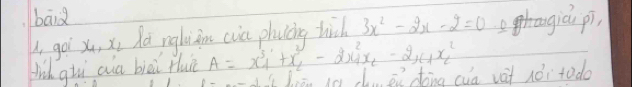 bài 2
1, gọi x₁, x₂ là nghiệm của phương trình 3x² - 2x - 2 = 0 giải pt,
tính gtrị của biểu thức A = x₁³ + x₂³ - 2x₁²x₂ - 2x₁x₂²
chuyển động của vật rơi tự do